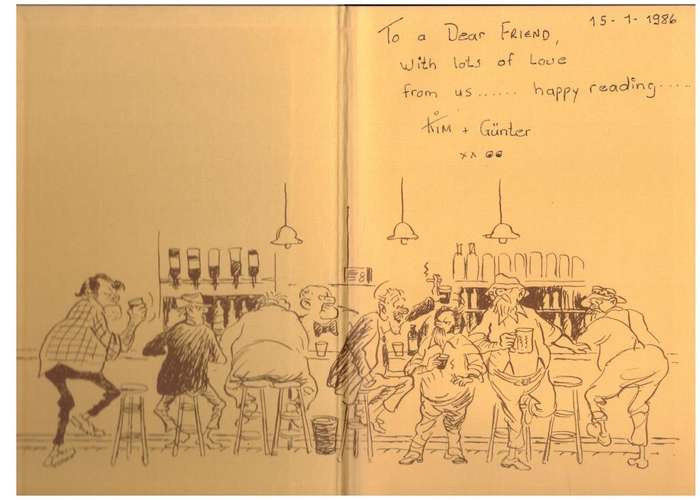 15-1-1986
To a Dear FRIEND,
with lots of Love
from us...... happy reading.....
KIM + Günter
xx
8